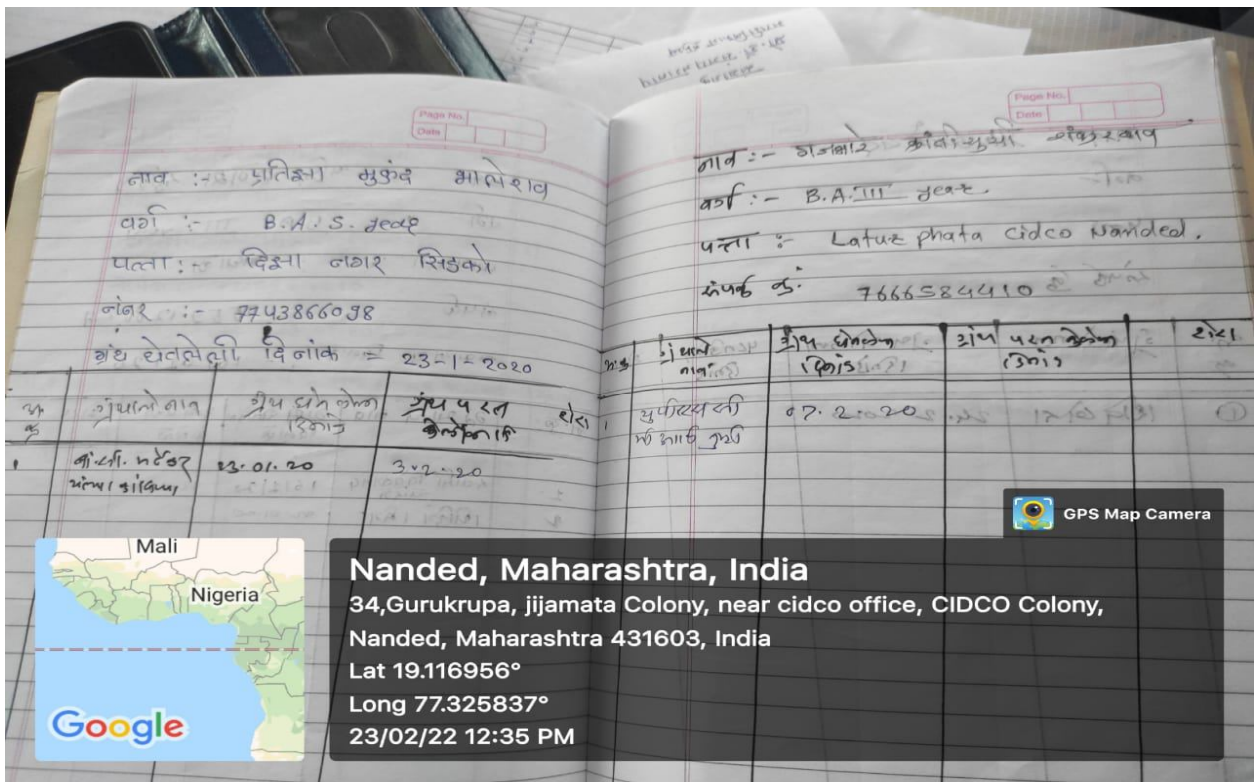 Page No.
Date
नाव :- प्रतिक्षा मुकुंद भालेराव
वर्ग :- B.A.S. year
पत्ता :- दिक्षा नगर सिडको
नंबर :- 7743866098
ग्रंथ घेतलेली दिनांक = 23-1-2020
अ क्र ग्रंथाले नाव ग्रंथ घेतलेला दिनांक ग्रंथ परत शेरा
23.01.20 3.2.20
Page No.
Date
नाव :- गजभारे
वर्ग :- B.A. III year.
पत्ता :- Latur phata Cidco Nanded.
संपर्क क्रं. 7666584410
अ.क्र ग्रंथाले नाव ग्रंथ घेतलेला दिनांक ग्रंथ परत केलेला दिनांक शेरा
1 07.2.20
GPS Map Camera
Mali
Nigeria
Google
Nanded, Maharashtra, India
34,Gurukrupa, jijamata Colony, near cidco office, CIDCO Colony,
Nanded, Maharashtra 431603, India
Lat 19.116956°
Long 77.325837°
23/02/22 12:35 PM